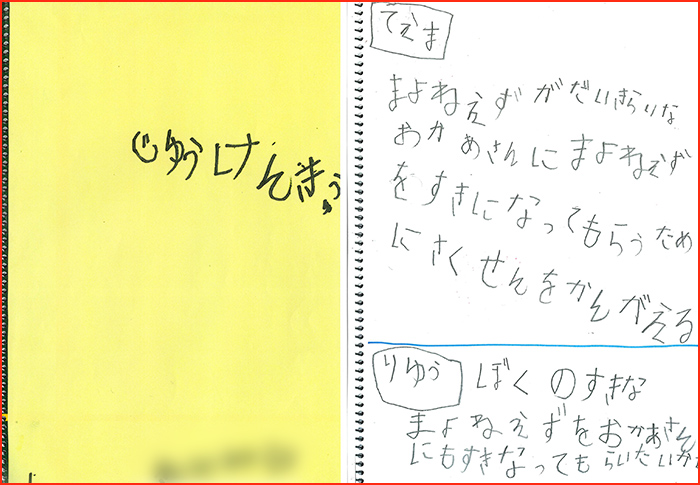 じゆうけんきゅう
てえま
まよねえずがだいきらいな
おかあさんにまよねえず
をすきになってもらうため
にさくせんをかんがえる
りゆう
ぼくのすきな
まよねえずをおかあさん
にもすきなってもらいたいか